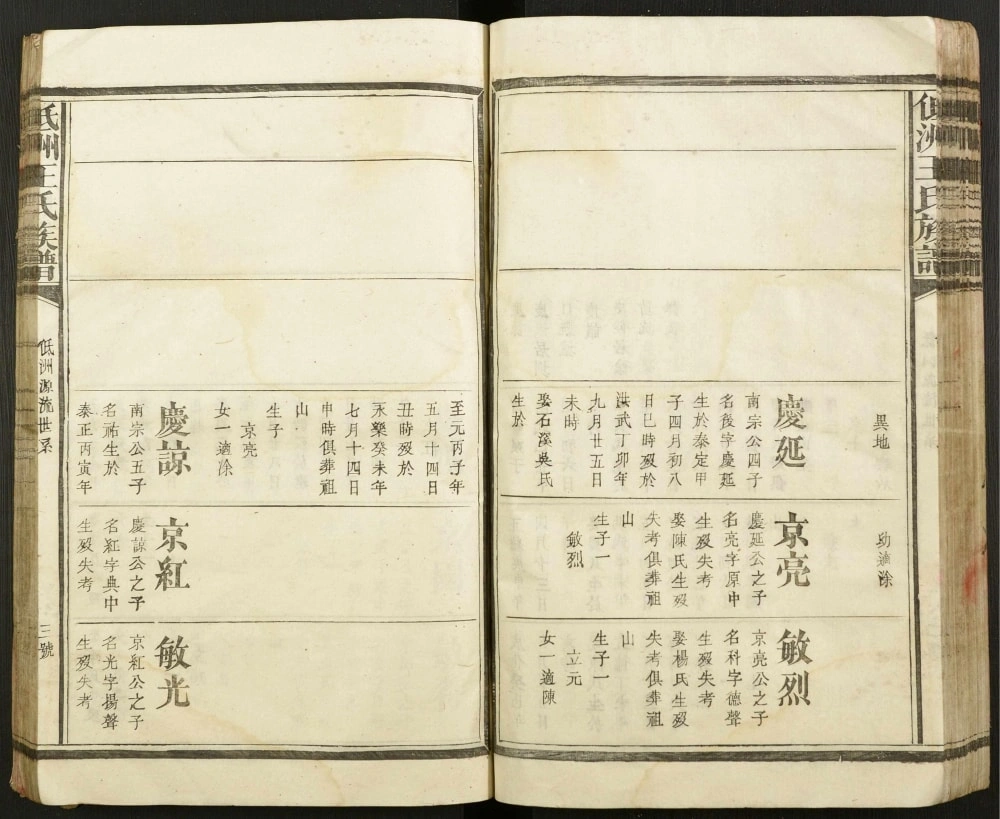 低洲王氏族譜
異地
功適涂
慶延
南宗公四子
名後字慶延
生於泰定甲
子四月初八
日巳時殁於
洪武丁卯年
九月廿五日
未時
娶石溪吳氏
生於
京亮
慶延公之子
名亮字原中
生殁失考
娶陳氏生殁
失考俱葬祖
山
生子一
敏烈
敏烈
京亮公之子
名科字德聲
生殁失考
娶楊氏生殁
失考俱葬祖
山
生子一
立元
女一適陳
至元丙子年
五月十四日
丑時殁於
永樂癸未年
七月十四日
申時俱葬祖
山
生子
京亮
女一適涂
慶諒
南宗公五子
名祐生於
泰正丙寅年
京紅
慶諒公之子
名紅字典中
生殁失考
敏光
京紅公之子
名光字揚聲
生殁失考
低洲王氏族譜
低洲源流世系
三號